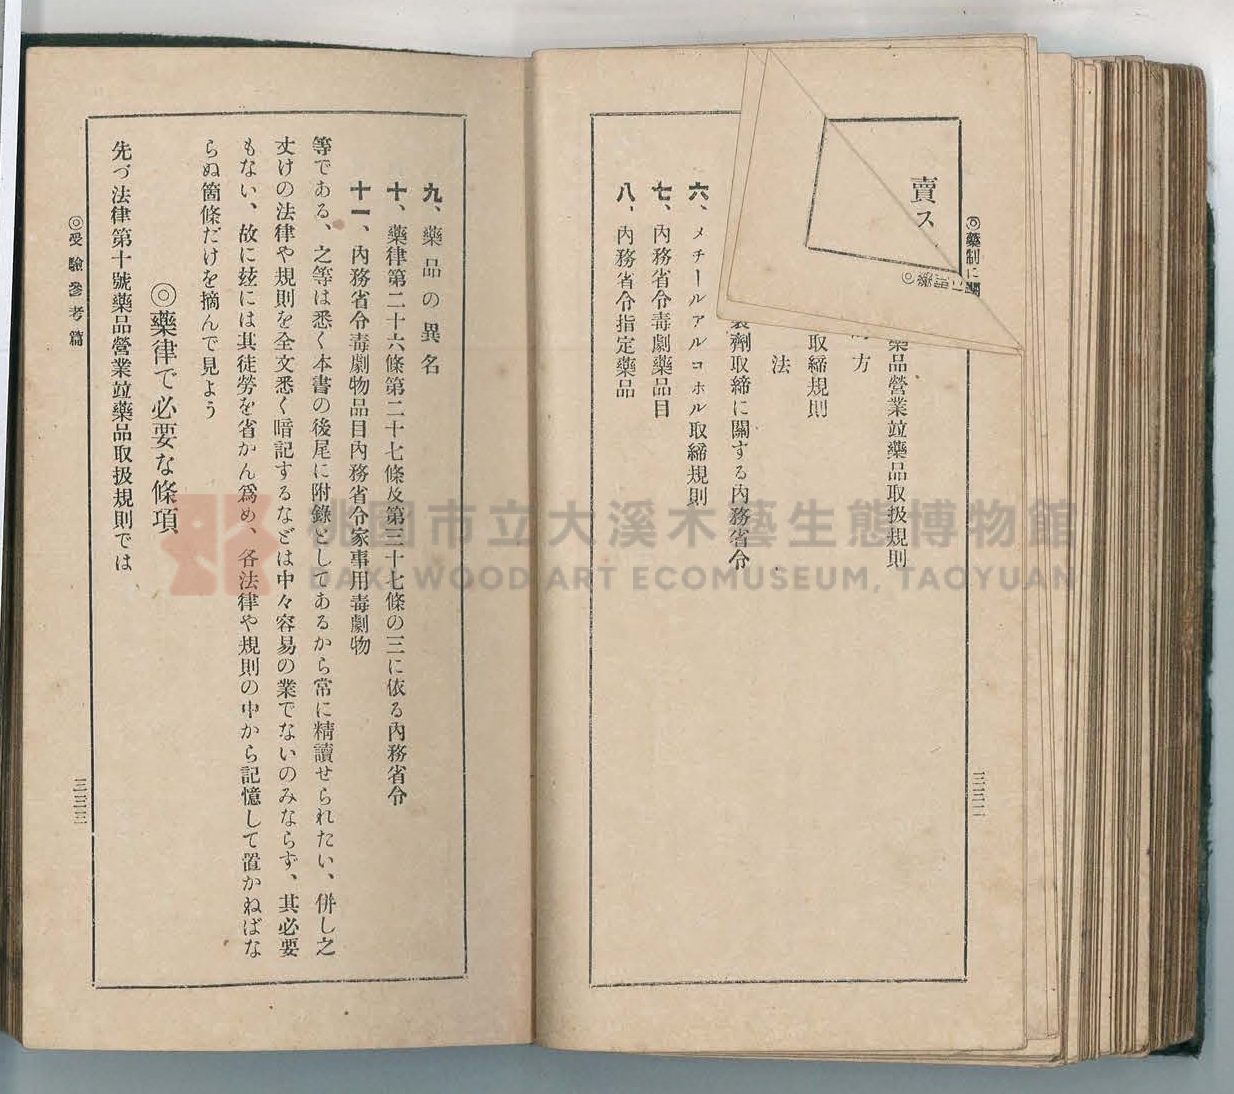 ◎藥制に關
賣ス
藥品營業竝藥品取扱規則
方
取締規則
法
製劑取締に關する內務省令
六、メチールアルコホル取締規則
七、內務省令毒劇藥品目
八、內務省令指定藥品
三三二
九、藥品の異名
十、藥律第二十六條第二十七條及第三十七條の三に依る內務省令
十一、內務省令毒劇物品目內務省令家事用毒劇物
等である、之等は悉く本書の後尾に附錄としてあるから常に精讀せられたい、併し之
丈けの法律や規則を全文悉く暗記するなどは中々容易の業でないのみならず、其必要
もない、故に玆には其徒勞を省かん爲め、各法律や規則の中から記憶して置かねばな
らぬ箇條だけを摘んで見よう
◎藥律で必要な條項
先づ法律第十號藥品營業竝藥品取扱規則では
◎受驗參考篇
三三三
桃園市立大溪木藝生態博物館
DAXI WOOD ART ECOMUSEUM, TAOYUAN